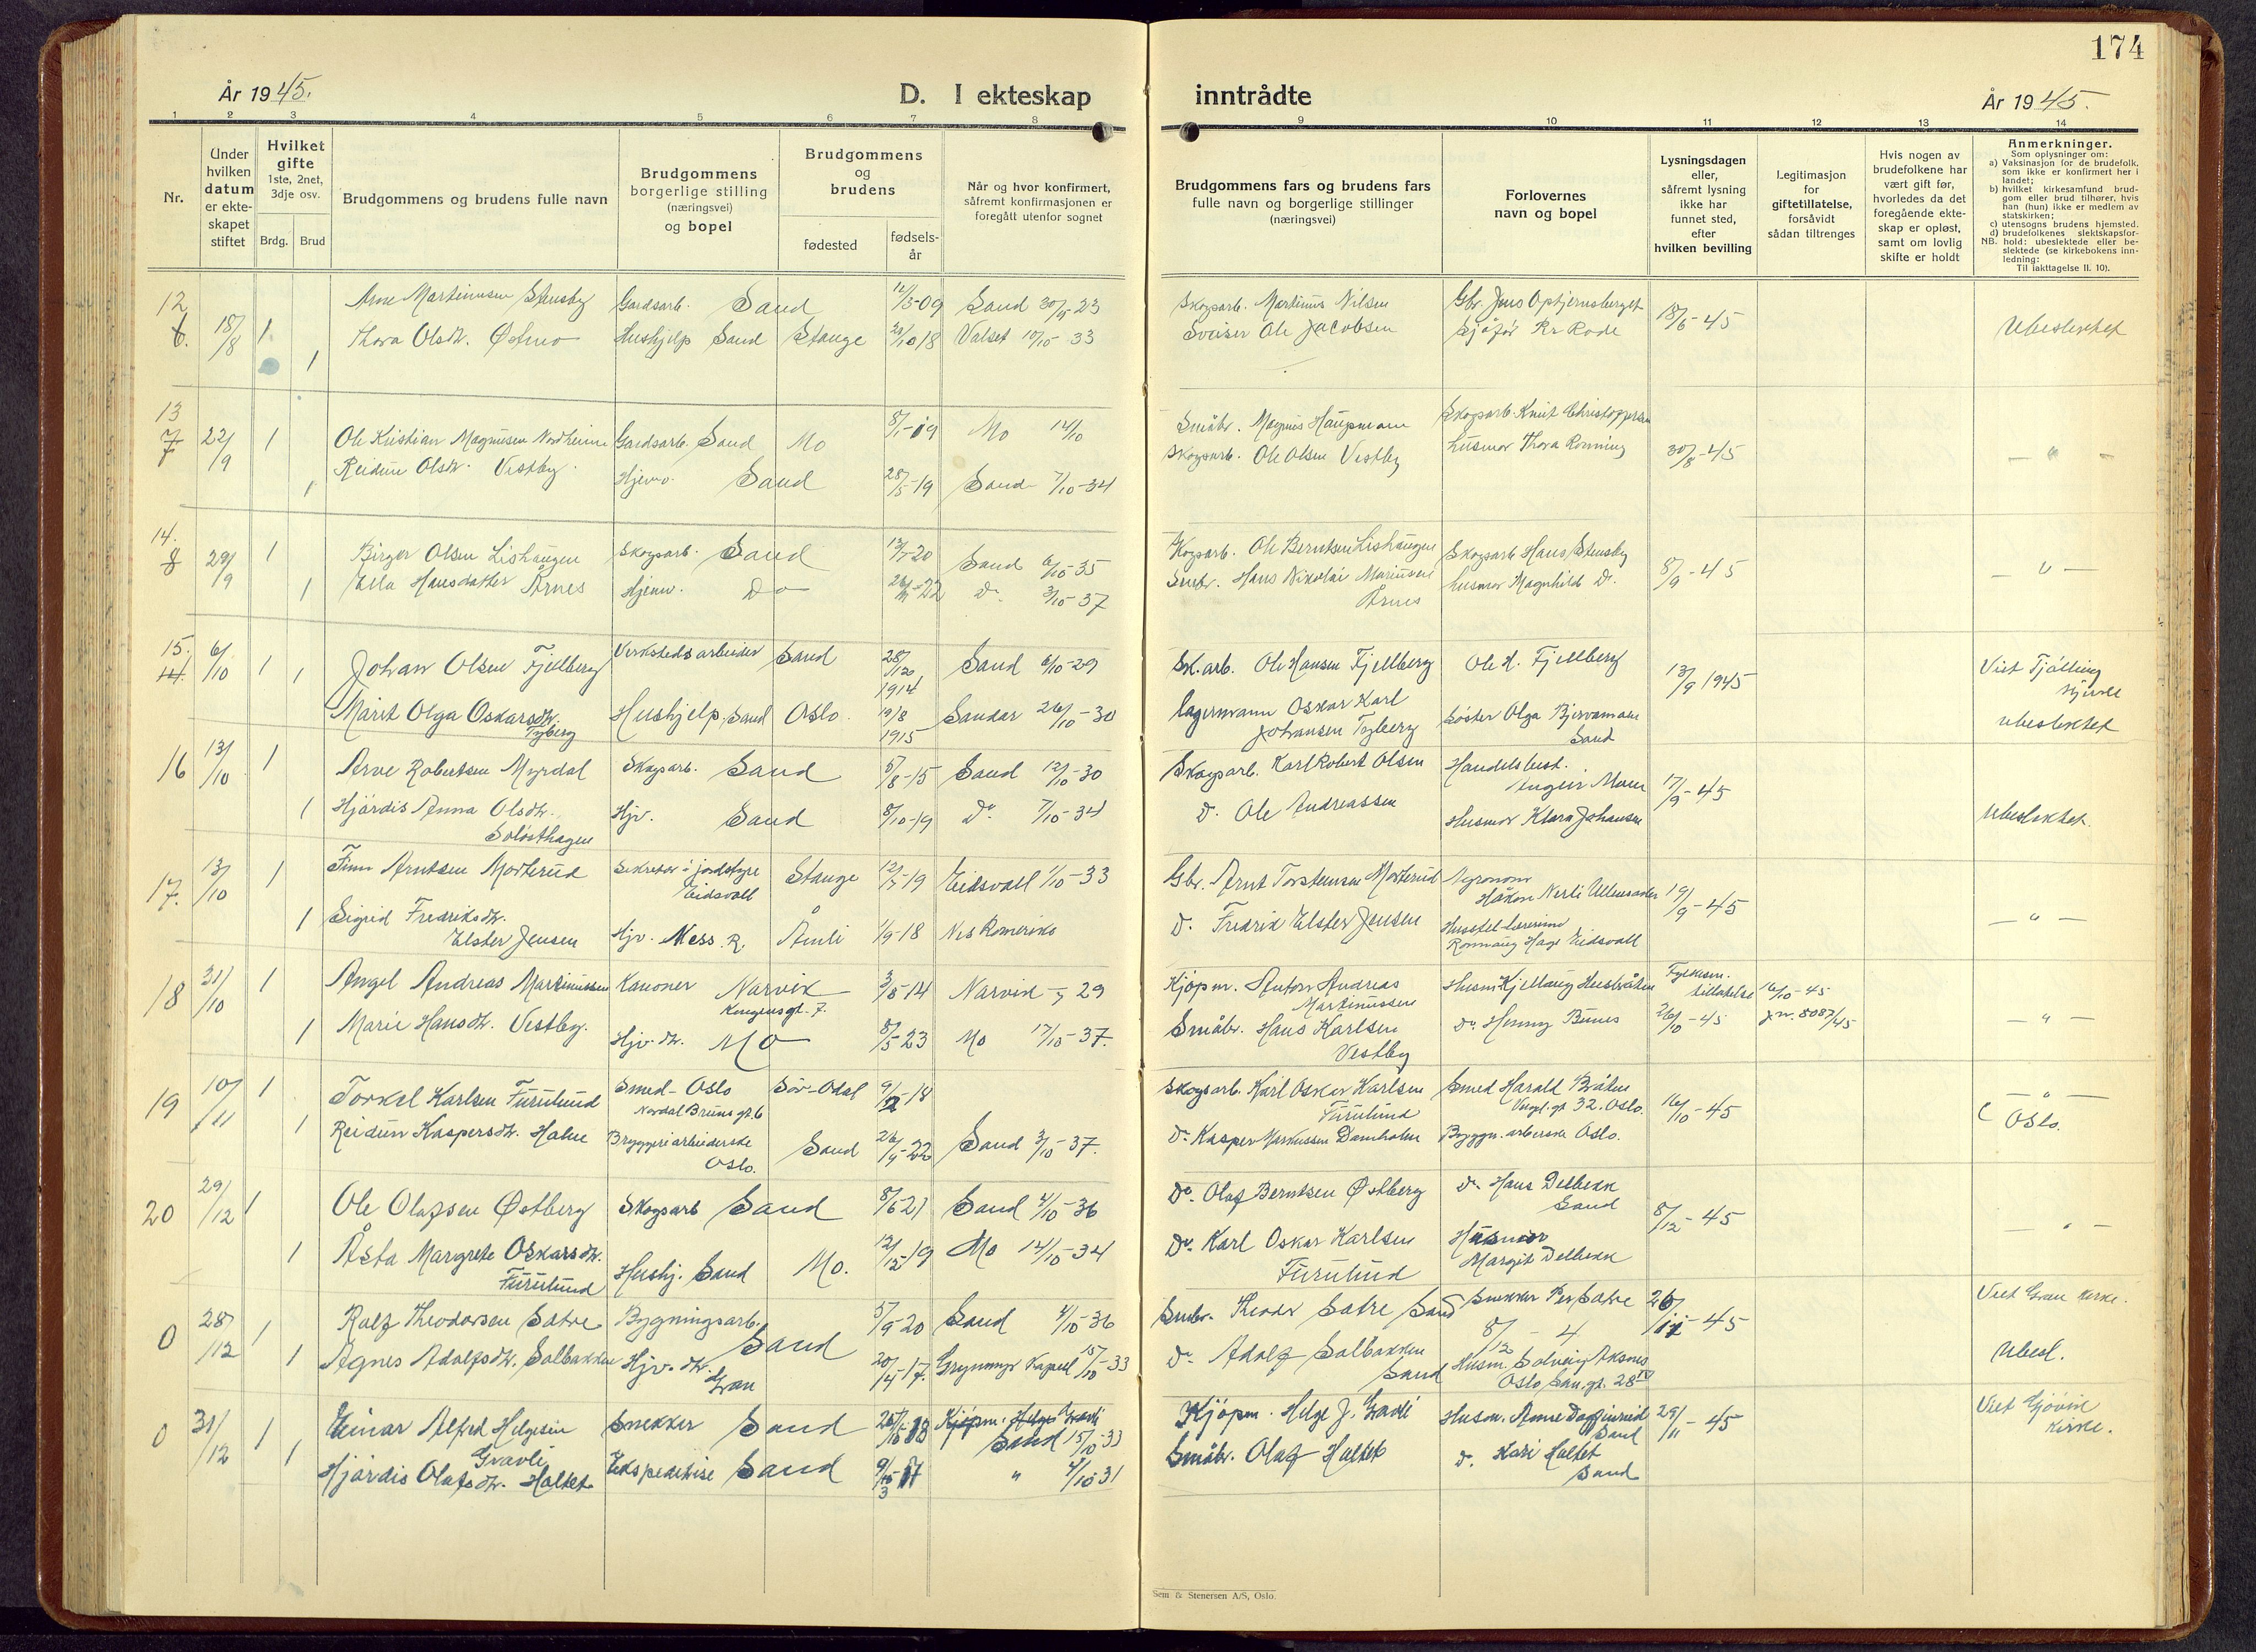 174
År 1945.
D. I ekteskap
inntrådte
År 1945.
1 2 3 4 5 6 7 8
9 10 11 12 13 14
Nr.
Under hvilken datum er ekteskapet stiftet
Hvilket gifte
1ste, 2net, 3dje osv.
Brdg. Brud
Brudgommens og brudens fulle navn
Brudgommens borgerlige stilling (næringsvei) og bopel
Brudgommens og brudens
fødested
fødselsår
Når og hvor konfirmert, såfremt konfirmasjonen er foregått utenfor sognet
Brudgommens fars og brudens fars fulle navn og borgerlige stillinger (næringsvei)
Forlovernes navn og bopel
Lysningsdagen eller, såfremt lysning ikke har funnet sted, efter hvilken bevilling
Legitimasjon for giftetillatelse, forsåvidt sådan tiltrenges
Hvis nogen av brudefolkene har vært gift før, hvorledes da det foregående ekteskap er opløst, samt om lovlig skifte er holdt
Anmerkninger.
Som oplysninger om:
a) Vaksinasjon for de brudefolk, som ikke er konfirmert her i landet;
b) hvilket kirkesamfund brudgom eller brud tilhører, hvis han (hun) ikke er medlem av statskirken;
c) utensogns brudens hjemsted.
d) brudefolkenes slektskapsforhold: ubeslektede eller beslektede (se kirkebokens innledning:
NB.
Til iakttagelse II. 10).
12 6. 18/8 1 Arne Martinusen Stensby Gardsarb. Sand 12/5-09 Sand 30/9-23 Skogsarb. Martinus Nilsen Gbr. Jens Optjernsberget 18/6-45
1 Thora Olsdtr. Østmo Hushjelp Sand Stange 29/10 18 Valset 10/10-33 Sveiser Ole Jacobsen Sjåfør Kr Rode Ubeslektet
13 7 22/9 1 Ole Kristian Magnusen Nordheim Gardsarb. Sand Mo 8/1-19 Mo 14/10 Småbr. Magnus Haugsmoen Skogsarb. Knut Christoppersen
1 Reidun Olsdtr. Vestby. Hjemv. Sand 28/5-19 Sand 7/10-34 Skogsarb. Ole Olsen Vestby husmor Thora Rønning 30/8-45 — " —
14. 8 29/9 1 Birger Olsen Lishaugen Skogsarb. Sand 13/7-20 Sand 6/10-35 Skogsarb. Ole Berntsen Lishaugen Skogsarb Hans Stensby 8/9-45
1 Ella Hansdatter Årnes Hjemv. Do 22 Do 3/10-37 Smbr. Hans Nikolai Mariusen Årnes husmor Magnhild Do. — " —
15. 6/10 1 1 Johan Olsen Fjellberg Verkstedsarbeider Sand 1914 Sand 6/10-29 Sk.arb. Ole Hansen Fjellberg Ole H. Fjellberg 13/9 1945 Viet Tjølling kirke
Marit Olga Oskarsdtr. Nyberg Hushjelp, Sand Oslo. 19/8 1915 Sandar 26/10-30 Lagermann Oskar Karl Johansen Nyberg Søster Olga Bjervamoen Sand Ubeslektet
16 13/10 1 Arve Robertsen Myrdal Skogsarb. Sand 5/8-15 Sand 12/10-30 Skogsarb. Karl Robert Olsen Handelsbest. Moen 17/9-45
1 Hjördis Anna Olsdtr. Soløsthagen Hjv. Sand 8/10-19 Do. 7/10-34 Do. Ole Andreassen Husmor Klara Johansen Ubeslektet.
17. 13/10 1 Finn Arntsen Morterud Sekretær i jordstyre Eidsvoll Stange 12/7-19 Eidsvoll 1/10-33 Gbr. Arnt Torstensen Morterud Agronom Håkon Nerli Ullensaker 19/9-45
1 Sigrid Fredriksdtr. Elster Jensen Hjv. Ness. R. Åmli 1/9-18 Nes Romerike Do. Fredrik Elster Jensen Husstel-lærerinne Rønnaug Hage Eidsvoll — " —
18 31/10 1 Angel Andreas Martinussen Kanoner Narvik Kongensgt. 7. 3/8-14 Narvik 29 Kjøpm. Anton Andreas Martinussen Husm Kjellaug Husbråten Fylkesm. tillatelse 16/10-45
1 Marie Hansdtr. Vestby. Hjv. dtr. Mo 8/5-23 Mo 17/10-37. Småbr. Hans Karlsen Vestby Do. Henny Benes 26/10-45 j.nr. 8087/45 — " —
19 10/11 1 Torkel Karlsen Furulund Smed - Oslo Nordal Bruns gt. 6 Sør-Odal 9/2-18 Skogsarb. Karl Oskar Karlsen Furulund Smed Harald Bråten gt 32. Oslo. 16/10-45 — " —
1 Reidun Kaspersdtr. Holm Bryggeriarbeiderske Oslo. Sand 26/4-22 Sand 3/10-37. Do. Kasper Markussen Damholm Bryggn. arberske Oslo. ( Oslo.
20 29/12 1 Ole Olafsen Østberg Skogsarb Sand 8/6 21 Sand 4/10-36 Do. Olaf Berntsen Østberg Do. Hans Delbekk Sand 8/12-45
1 Åsta Margrete Oskarsdtr. Furulund Hushj. Sand Mo. 12/12-19 Mo 14/10-34 Do. Karl Oskar Karlsen Furulund Husmor Margit Delbekk — " —
0 28/12 1 Rolf Theodorsen Sætre Bygningsarb. Sand 5/9-20 Sand 4/10-36 Smbr. Theodor Sætre Sand Snekker Per Sætre 26/11-45 Viet Gran kirke.
1 Agnes Adolfsdtr. Solbakken Hjv. dtr. Gran 20/4-17. Grynmyr Kapell 15/10-33 Do. Adolf Solbakken Sand 8/12 - 4 Husm. Solveig Aksnes Oslo 28 Ubesl.
0 31/12 1 Einar Alfred Helgesen Gravli Snekker Sand 18 Kjøpm. Helge Gravli Sand 15/10-33 Kjøpm. Helge J. Gravli Husm. Anne Sand 29/11-45 Viet Gjøvik kirke.
1 Hjördis Olafsdtr. Holtet Ekspeditrise Sand 17 " 4/10 31 Småbr. Olaf Holtet Do. Kari Holtet Sand
Sem & Stenersen A/S, Oslo.